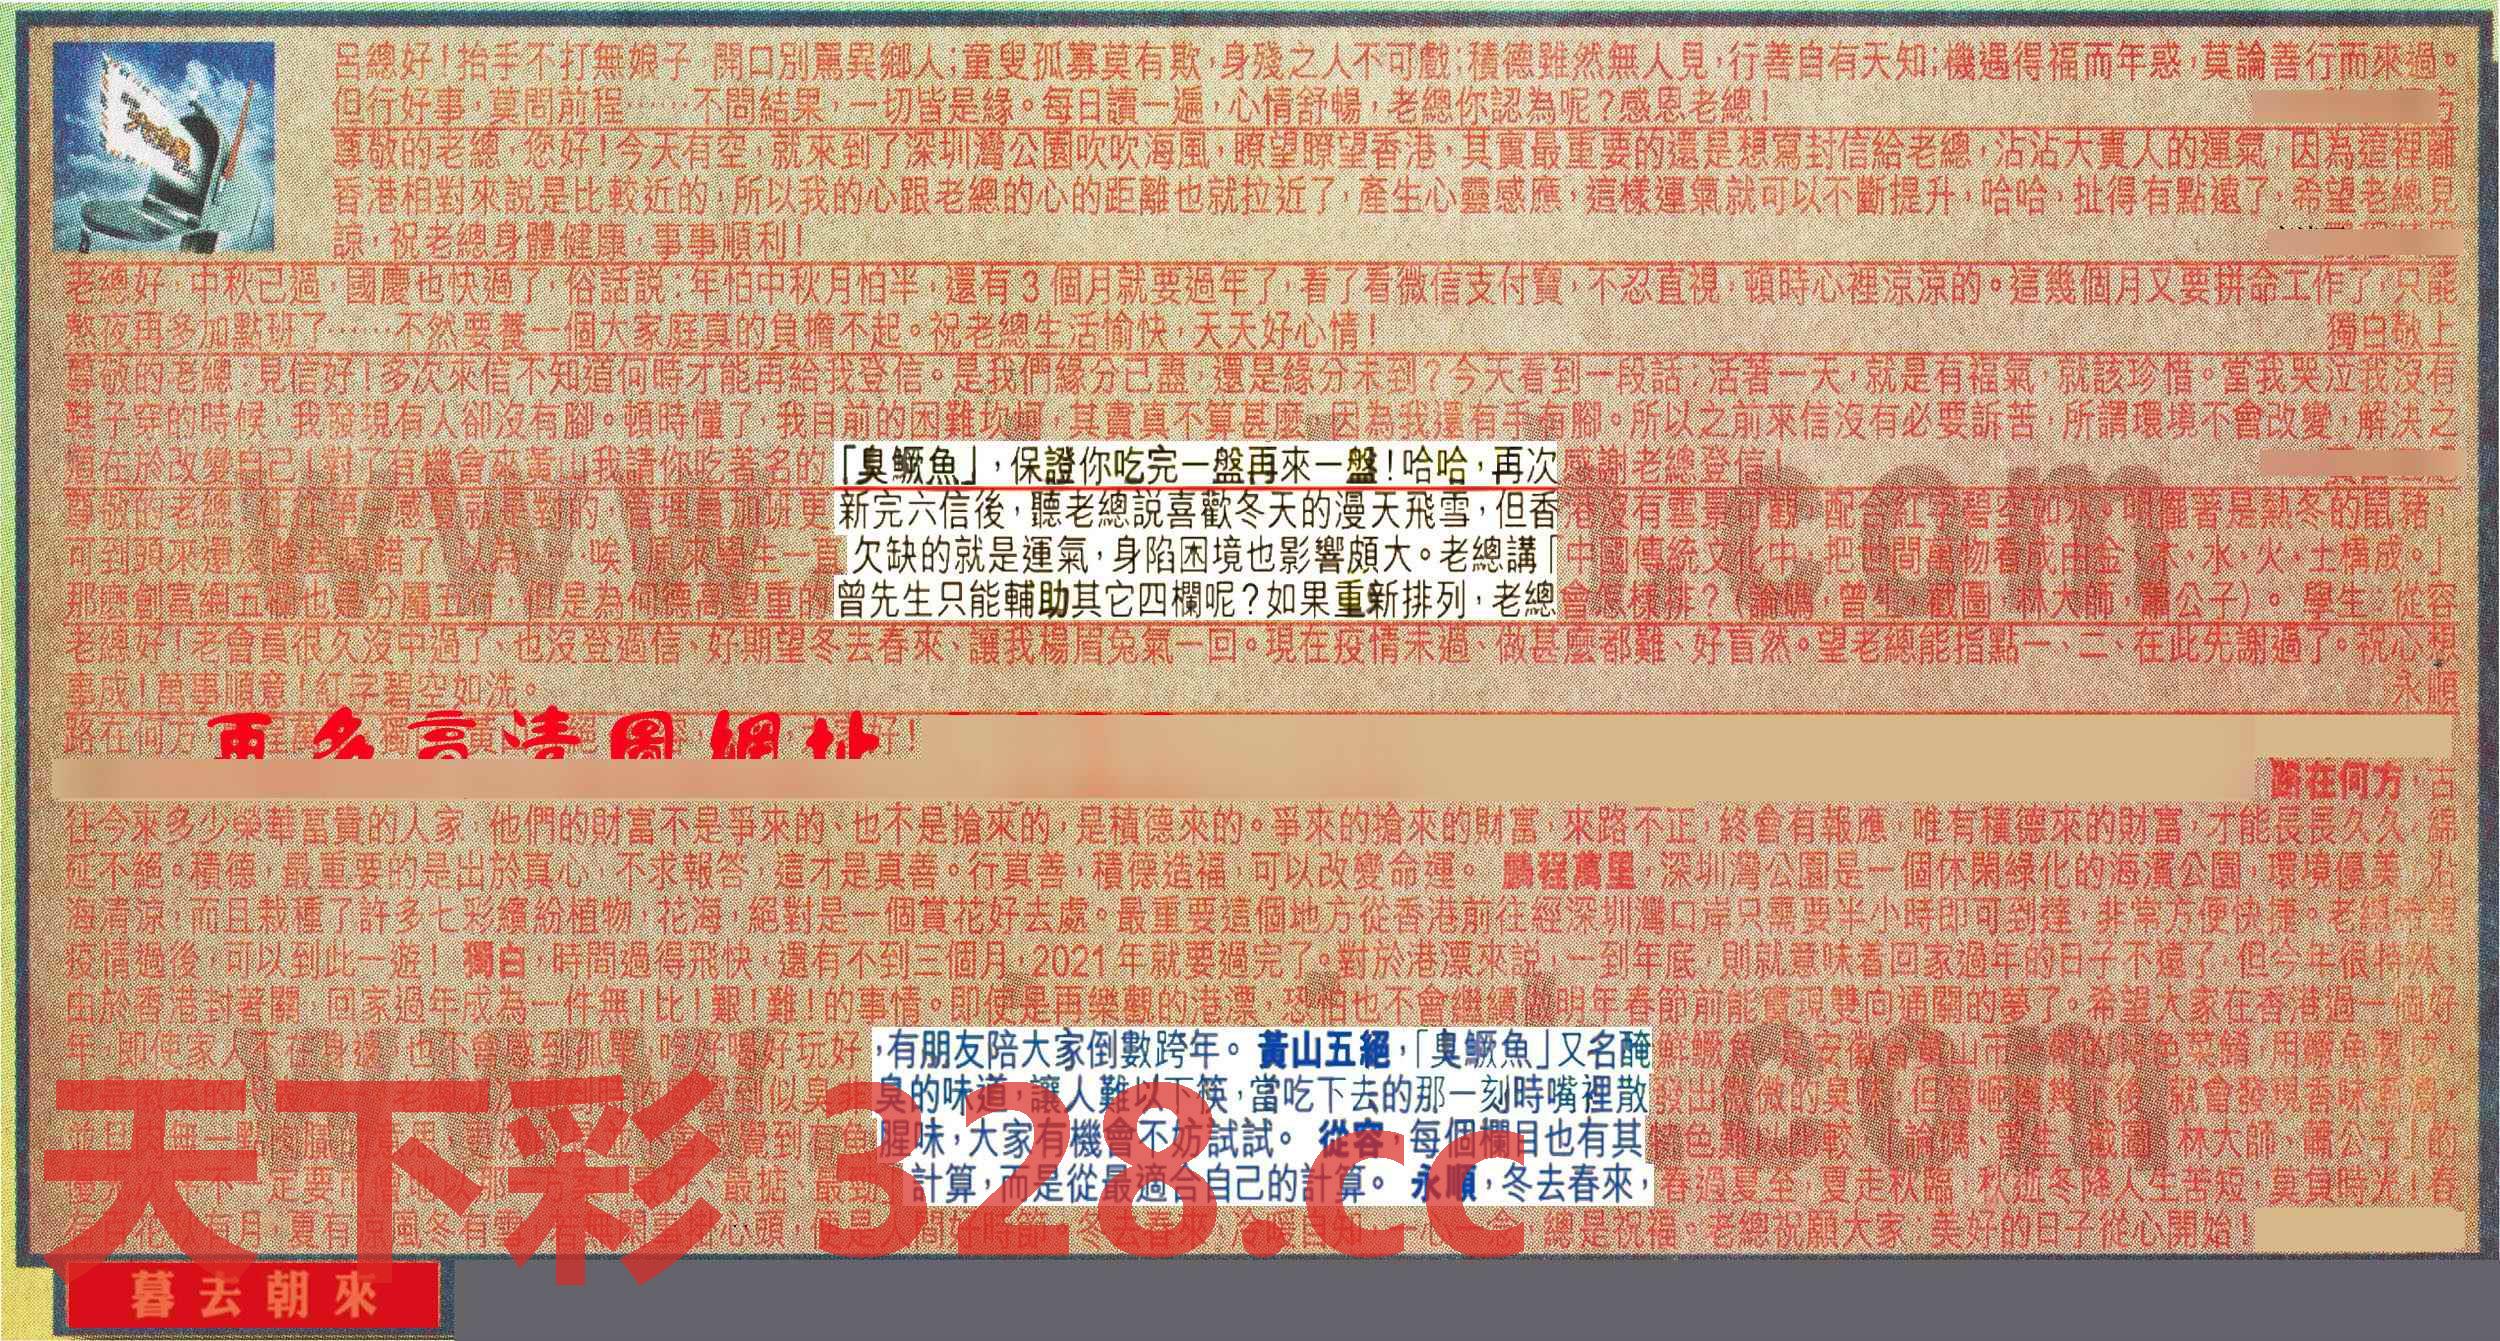 呂總好!抬手不打無娘子,開口別罵異鄉人;童叟孤寡莫有欺,身殘之人不可戲;積德雖然無人見,行善自有天知;機遇得福而年惑,莫論善行而來過。
但行好事,莫問前程……不問結果,一切皆是緣。每日讀一遍,心情舒暢,老總你認為呢?感恩老總!
尊敬的老總,您好!今天有空,就來到了深圳灣公園吹吹海風,瞭望瞭望香港,其實最重要的還是想寫封信給老總,沾沾大貴人的運氣,因為這裡離
香港相對來説是比較近的,所以我的心跟老總的心的距離也就拉近了,產生心靈感應,這樣運氣就可以不斷提升,哈哈,扯得有點遠了,希望老總見
諒,祝老總身體健康,事事順利!
老總好,中秋已過,國慶也快過了,俗話説:年怕中秋月怕半,還有3個月就要過年了,看了看微信支付寶,不忍直視,頓時心裡涼涼的。這幾個月又要拼命工作了,只能
熬夜再多加點班了……不然要養一個大家庭真的負擔不起。祝老總生活愉快,天天好心情! 獨白敬上
尊敬的老總:見信好!多次來信不知道何時才能再給我登信。是我們緣分已盡,還是緣分未到?今天看到一段話:活著一天,就是有福氣,就該珍惜。當我哭泣我沒有
鞋子穿的時候,我發現有人卻沒有腳。頓時懂了,我目前的困難坎坷,其實真不算甚麼,因為我還有手有腳。所以之前來信沒有必要訴苦,所謂環境不會改變,解決之
道在於改變自己!對了有機會來黃山我請你吃著名的「臭鱖魚」,保證你吃完一盤再來一盤!哈哈,再次感謝老總登信!
尊敬的老總 感覺就是對的,管理員加班更新完六信後,聽老總説喜歡冬天的漫天飛雪,但香港沒有雪景可觀,配合紅字碧空如水,明擺著是熱冬的鼠豬,
可到頭來還是 錯了,以為……唉!原來學生一直欠缺的就是運氣,身陷困境也影響頗大。老總講「中國傳統文化中,把世間萬物看成由金、木、水、火、土構成。」
那麼創富網五欄也是分屬五行,但是為何德高望重的曾先生只能輔助其它四欄呢?如果重新排列,老總會怎樣排?(論碼,曾生,截圖,林大師,蕭公子)。 學生:從容
老總好!老會員很久沒中過了、也沒登過信、好期望冬去春來、讓我楊眉兔氣一回。現在疫情未過、做甚麼都難、好盲然。望老總能指點一、二、在此先謝過了。祝心想
事成!萬事順意!紅字碧空如洗。 永順
路在何方 好!
更多高清圖網址
路在何方,古
往今來多少榮華富貴的人家,他們的財富不是爭來的、也不是搶來的,是積德來的。爭來的搶來的財富,來路不正,終會有報應,唯有積德來的財富,才能長長久久,綿
延不絕。積德,最重要的是出於真心,不求報答,這才是真善。行真善,積德造福,可以改變命運。 鵬程萬里,深圳灣公園是一個休閑綠化的海濱公園,環境優美,沿
海清涼,而且栽種了許多七彩繽紛植物,花海,絕對是一個賞花好去處。最重要這個地方從香港前往經深圳灣口岸只需要半小時即可到達,非常方便快捷。老總希望
疫情過後,可以到此一遊! 獨白,時間過得飛快,還有不到三個月,2021年就要過完了。對於港漂來説,一到年底,則就意味着回家過年的日子不遠了,但今年很特殊,
由於香港封著關,回家過年成為一件無!比!艱!難!的事情。即使是再樂觀的港漂,恐怕也不會繼續做明年春節前能實現雙向通關的夢了。希望大家在香港過一個好
年,即使家人不在身邊,也不會感到孤單,吃好喝好玩好,有朋友陪大家倒數跨年。 黃山五絕,「臭鱖魚」又名醃鮮鱖魚,
臭的味道,讓人難以下筷,當吃下去的那一刻時嘴裡散發出微微的臭味,
腥味,大家有機會不妨試試。 從容,每個欄目也有其特色難以比較,「論碼、曾生、截圖、林大師、蕭公子」的
計算,而是從最適合自己的計算。 永順,冬去春來,春過夏至,夏走秋臨,秋逝冬降人生苦短,莫負時光!春
有百花秋有月,夏有涼風冬有雪,若無閑事掛心頭,便是人間好時節。冬去春來,冷暖自知,一心一念,總是祝福。老總祝願大家:美好的日子從心開始!
天下彩 328.cc
暮去朝來